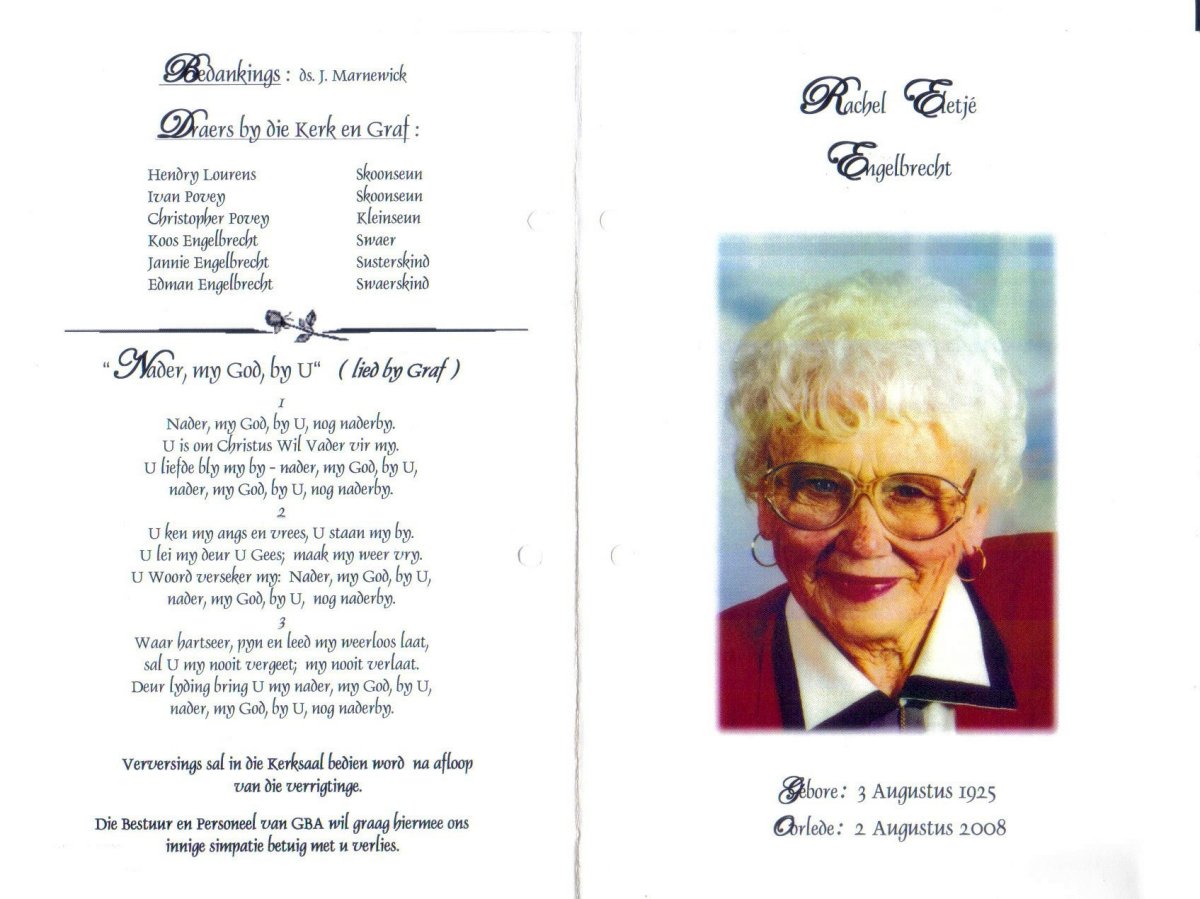 Bedankings : ds. J. Marnewick
Draers by die Kerk en Graf :
Hendry Lourens Skoonseun
Ivan Povey Skoonseun
Christopher Povey Kleinseun
Koos Engelbrecht Swaer
Jannie Engelbrecht Susterskind
Edman Engelbrecht Swaerskind
“ Nader, my God, by U“ ( lied by Graf )
1
Nader, my God, by U, nog naderby.
U is om Christus Wil Vader vir my.
U liefde bly my by - nader, my God, by U,
nader, my God, by U, nog naderby.
2
U ken my angs en vrees, U staan my by.
U lei my deur U Gees; maak my weer vry.
U Woord verseker my: Nader, my God, by U,
nader, my God, by U, nog naderby.
3
Waar hartseer, pyn en leed my weerloos laat,
sal U my nooit vergeet; my nooit verlaat.
Deur lyding bring U my nader, my God, by U,
nader, my God, by U, nog naderby.
Verversings sal in die Kerksaal bedien word na afloop
van die verrigtinge.
Die Bestuur en Personeel van GBA wil graag hiermee ons
innige simpatie betuig met u verlies.
Rachel Eletjé
Engelbrecht
Gebore: 3 Augustus 1925
Oorlede: 2 Augustus 2008